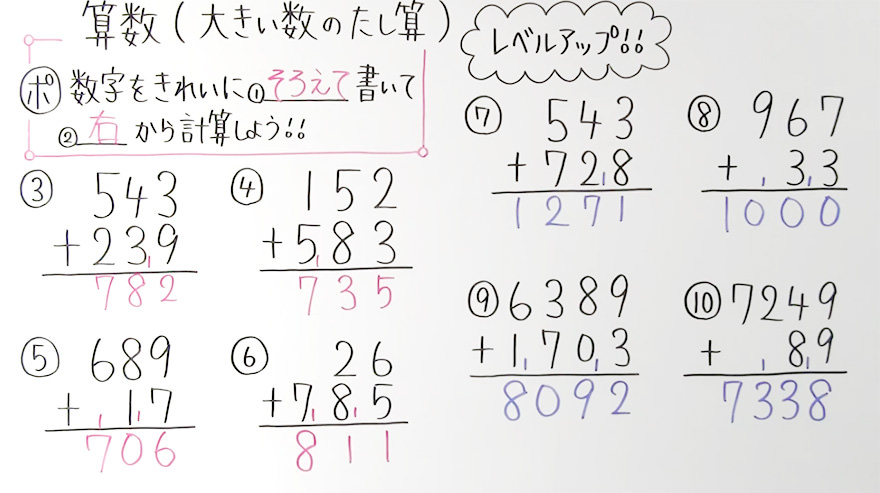 算数(大きい数のたし算)
ポ 数字をきれいに①そろえて書いて
②右から計算しよう!!
③ 543
+239
782
④ 152
+583
735
⑤ 689
+17
706
⑥ 26
+785
811
レベルアップ!!
⑦ 543
+728
1271
⑧ 967
+33
1000
⑨ 6389
+1703
8092
⑩ 7249
+89
7338